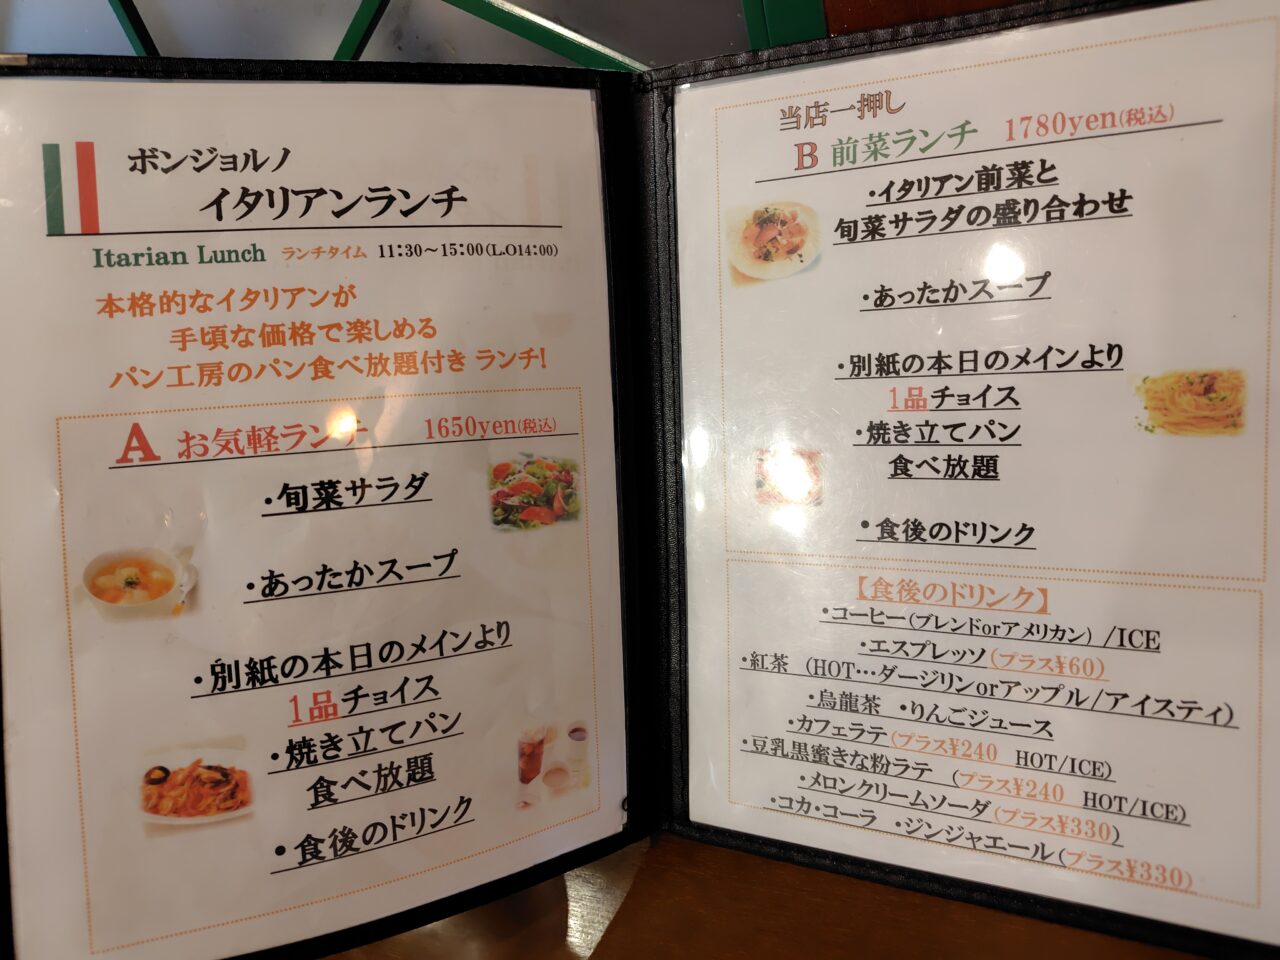 ボンジョルノ
イタリアンランチ
Itarian Lunch ランチタイム 11:30～15:00(L.O14:00)
本格的なイタリアンが
手頃な価格で楽しめる
パン工房のパン食べ放題付き ランチ!
A お気軽ランチ 1650yen(税込)
・旬菜サラダ
・あったかスープ
・別紙の本日のメインより
1品チョイス
・焼き立てパン
食べ放題
・食後のドリンク
当店一押し
B 前菜ランチ 1780yen(税込)
・イタリアン前菜と
旬菜サラダの盛り合わせ
・あったかスープ
・別紙の本日のメインより
1品チョイス
・焼き立てパン
食べ放題
・食後のドリンク
【食後のドリンク】
・コーヒー(ブレンドorアメリカン) /ICE
・エスプレッソ(プラス¥60)
・紅茶 (HOT…ダージリンorアップル/アイスティ)
・烏龍茶 ・りんごジュース
・カフェラテ(プラス¥240 HOT/ICE)
・豆乳黒蜜きな粉ラテ (プラス¥240 HOT/ICE)
・メロンクリームソーダ(プラス¥330)
・コカ・コーラ ・ジンジャエール(プラス¥330)